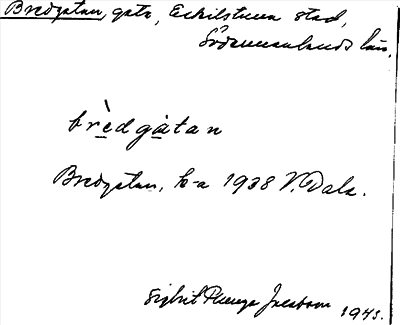 Bredgatan, gata, Eskilstuna stad,
Södermanlands län.
brèdgàtan
Bredgatan, k-a 1938 V. Dala.
Sigbrit Plænge Jacobson 1943.